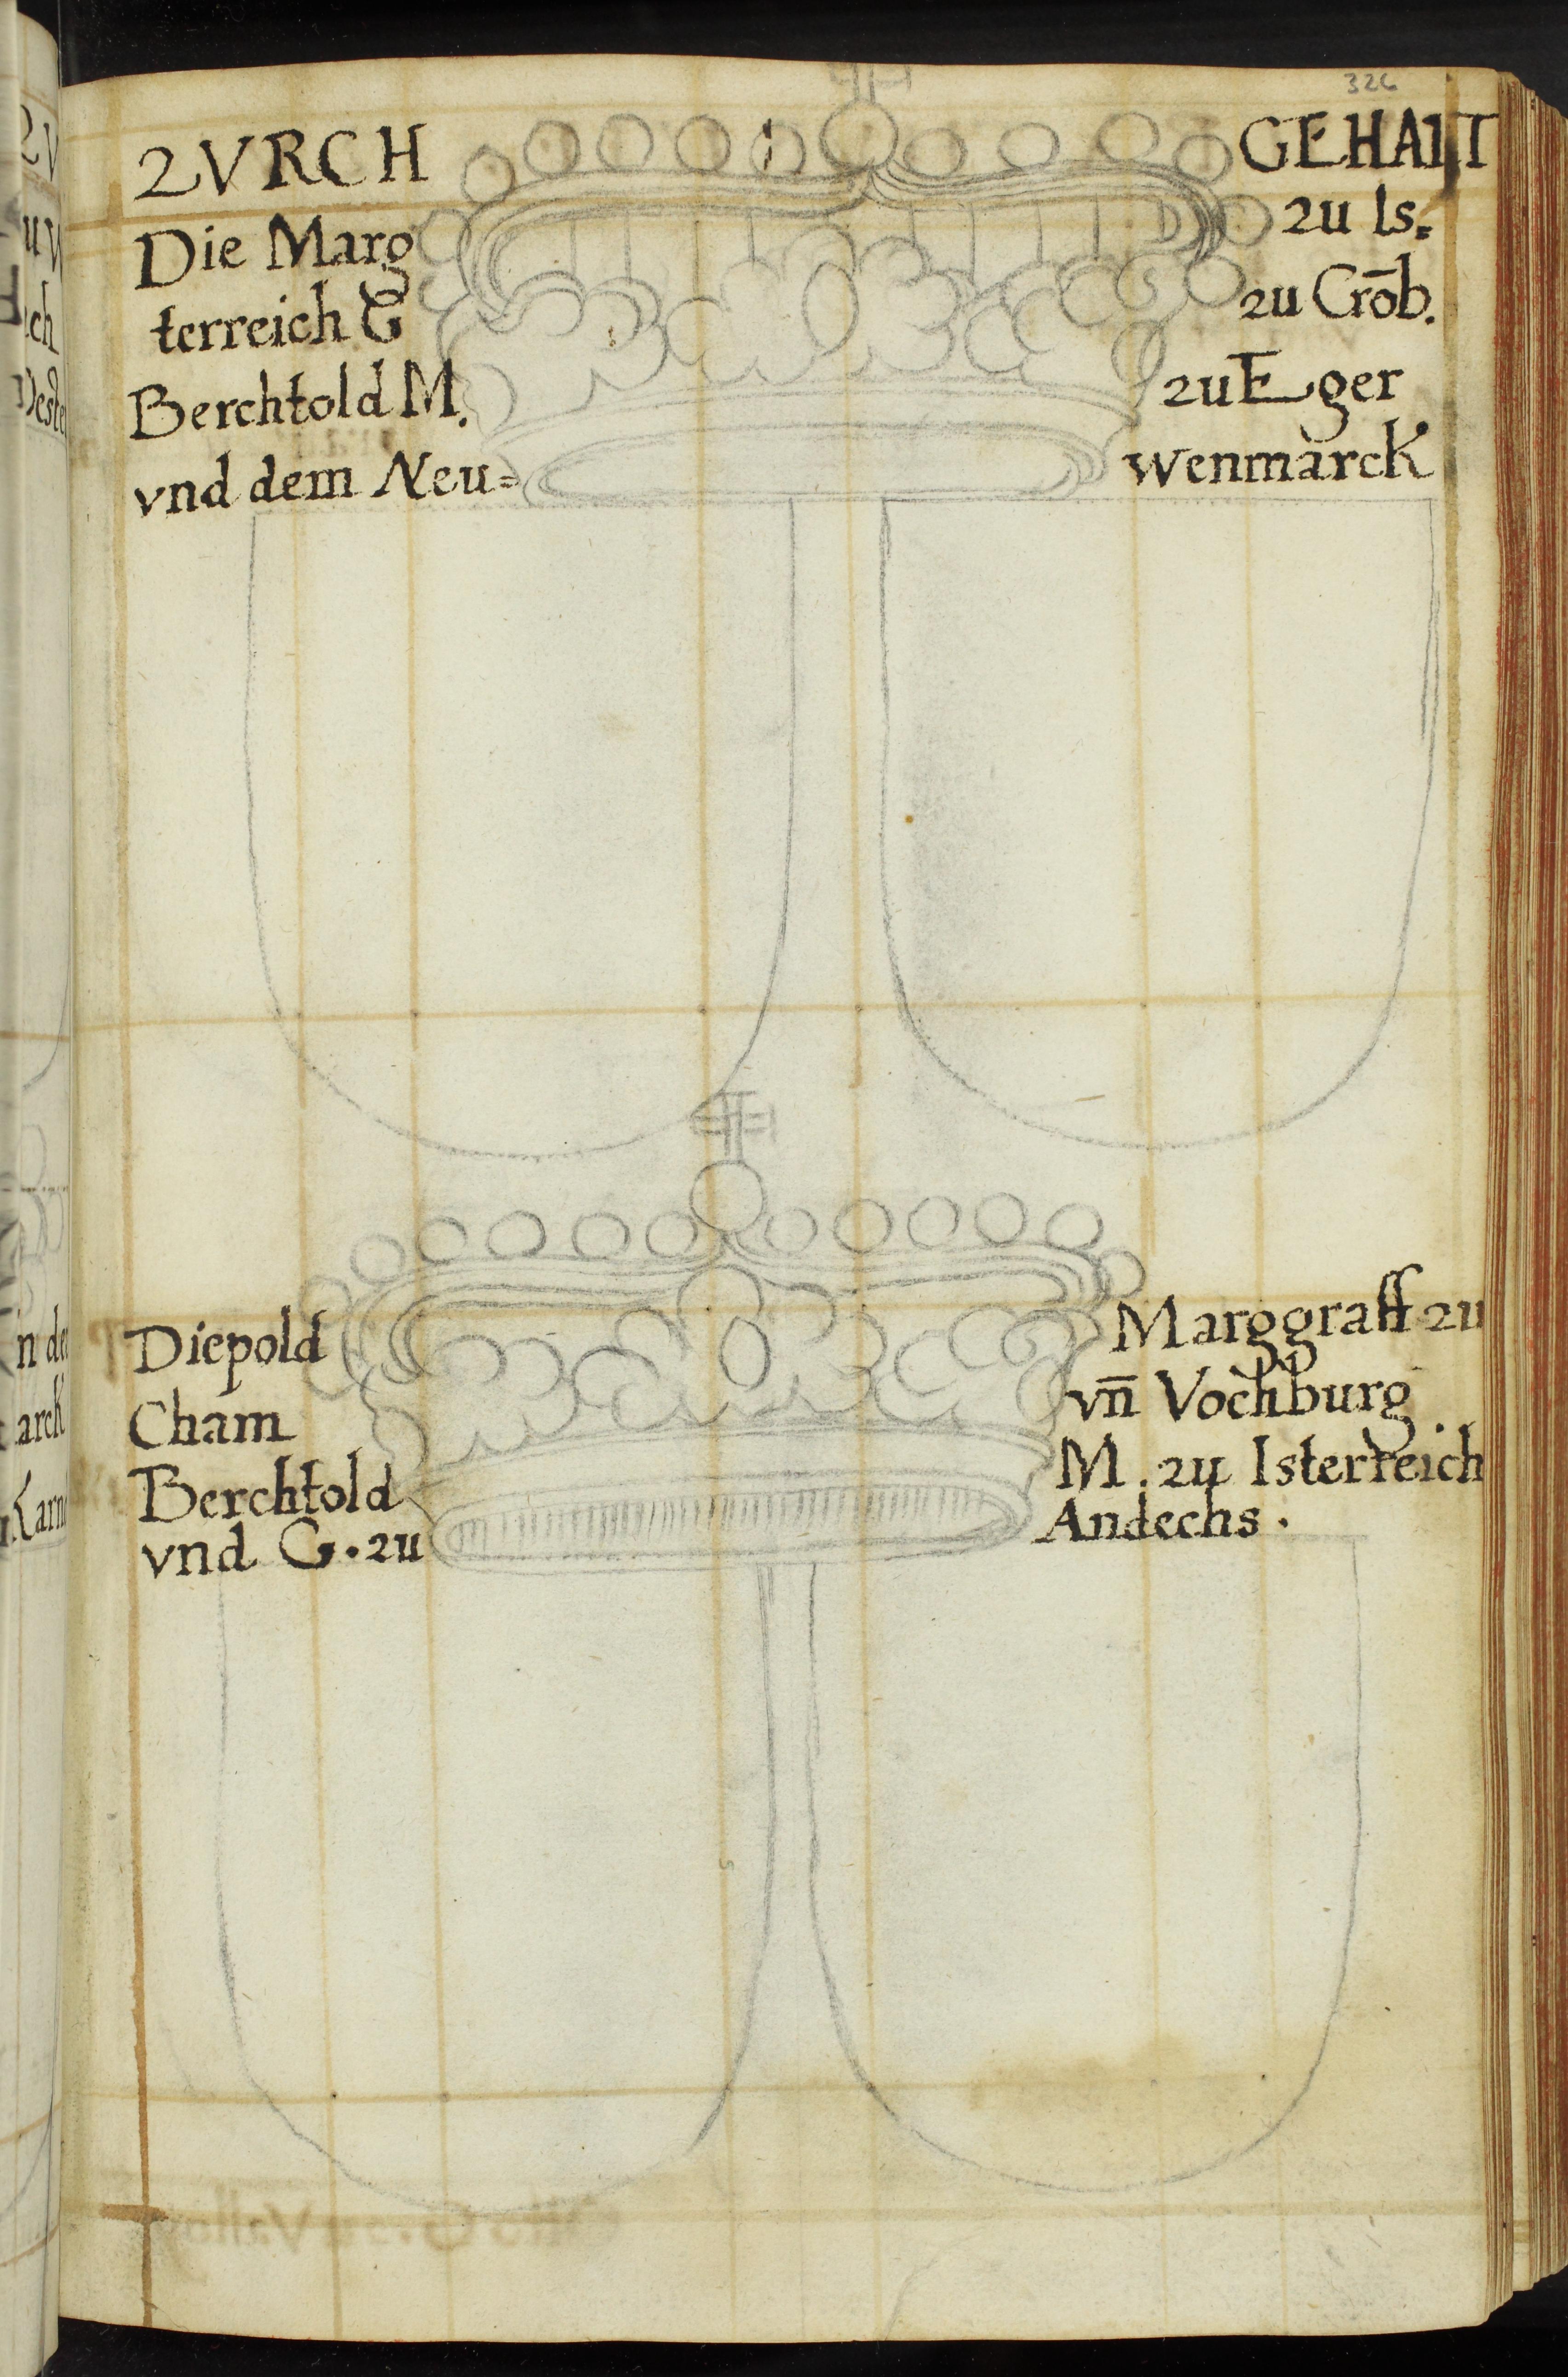 326
ZVRCH GEHALT
Die Marg zu Is=
terreich G zu Crōb.
Berchtold M. zu Eger
vnd dem Neu= wenmarck
Diepold Marggraff zu
Cham vn̄ Vochburg
Berchtold M. zu Isterreich
vnd G. zu Andechs.